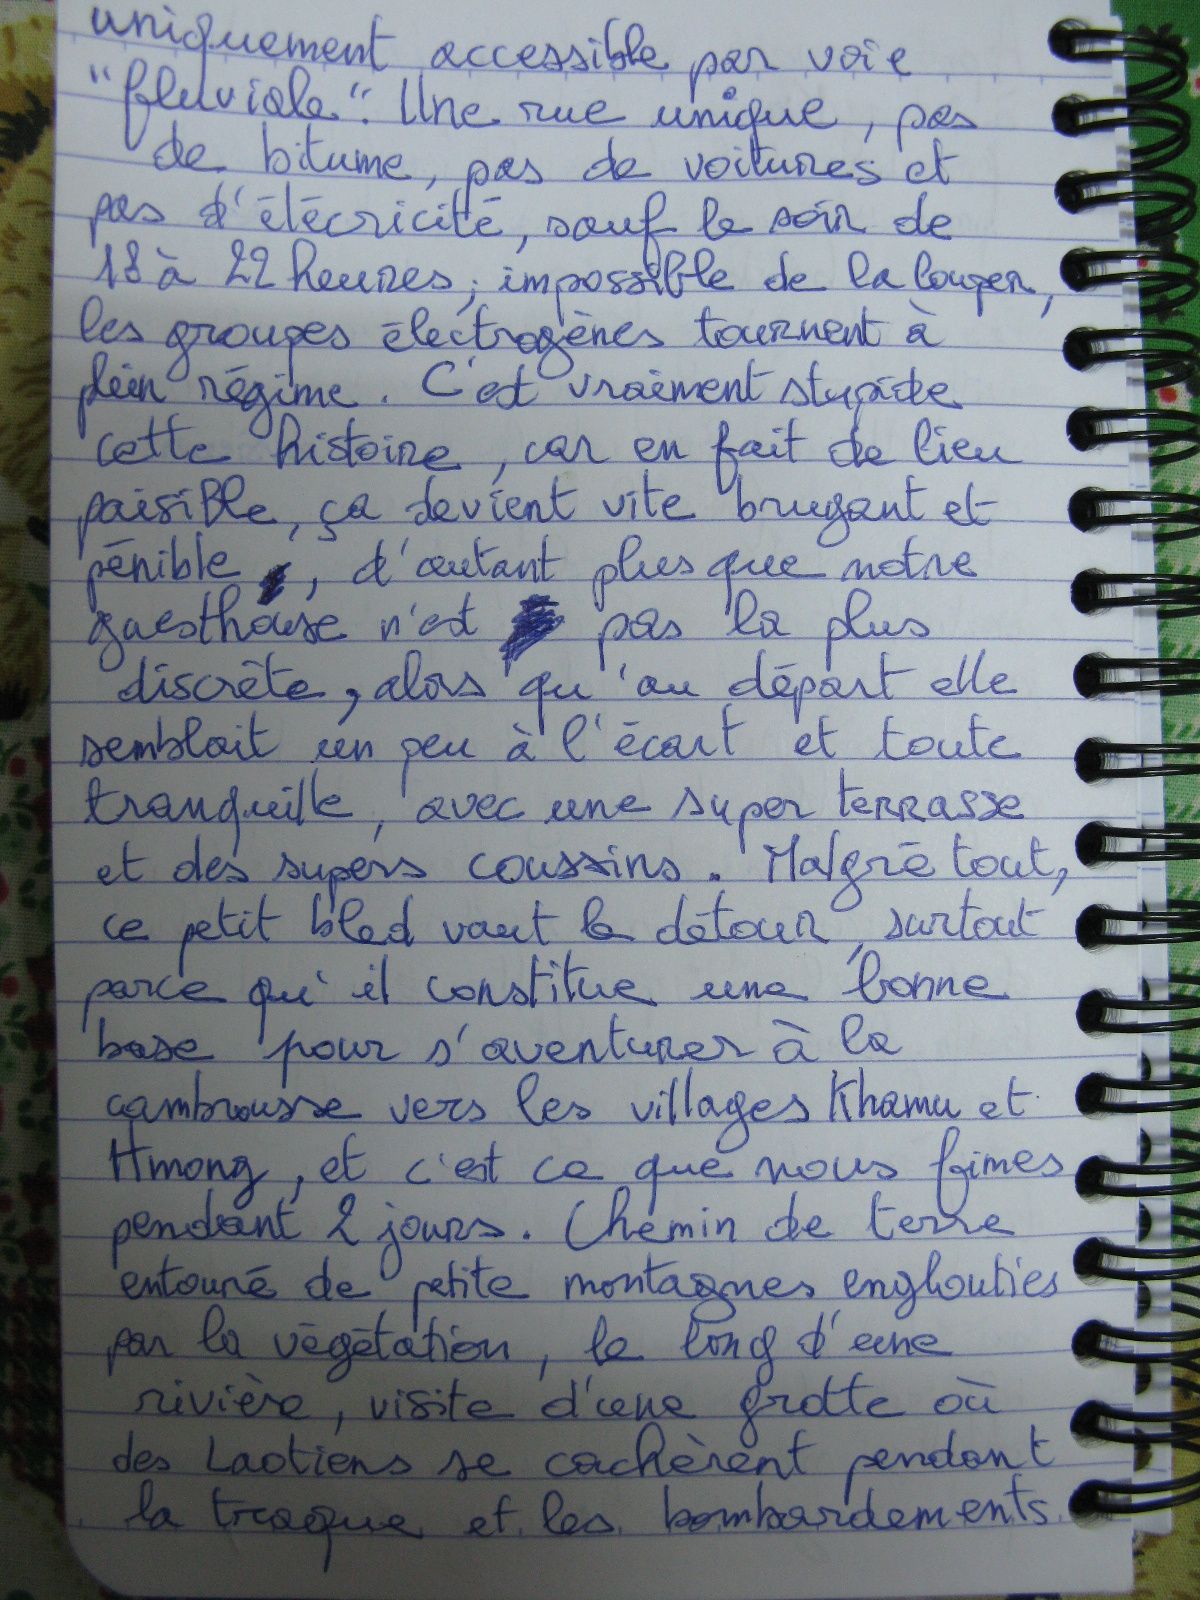 uniquement accessible par voie
"fluviale". Une rue unique, pas
de bitume, pas de voitures et
pas d'élécricité, sauf le soir de
18 à 22 heures ; impossible de la louper,
les groupes électrogènes tournent à
plein régime. C'est vraiment stupide
cette histoire, car en fait de lieu
paisible, ça devient vite bruyant et
pénible, d'autant plus que notre
guesthouse n'est pas la plus
discrète, alors qu'au départ elle
semblait un peu à l'écart et toute
tranquille, avec une super terrasse
et des supers coussins. Malgré tout,
ce petit bled vaut le détour, surtout
parce qu'il constitue une bonne
base pour s'aventurer à la
cambrousse vers les villages Khamu et
Hmong, et c'est ce que nous fimes
pendant 2 jours. Chemin de terre
entouré de petite montagnes englouties
par la végétation, le long d'une
rivière, visite d'une grotte où
des Laotiens se cachèrent pendant
la traque et les bombardements